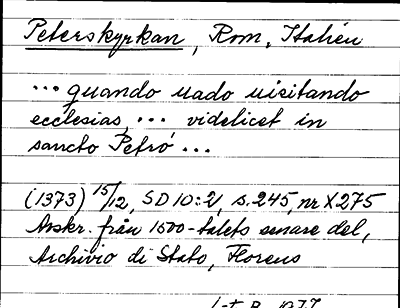 Peterskyrkan, Rom, Italien
... quando uado uisitando
ecclesias ... videlicet in
sancto Petro ...
(1373) 15/12, SD 10:2, s. 245, nr X275
Avskr. från 1500-talets senare del,
Archivio di Stato, Florens
1977